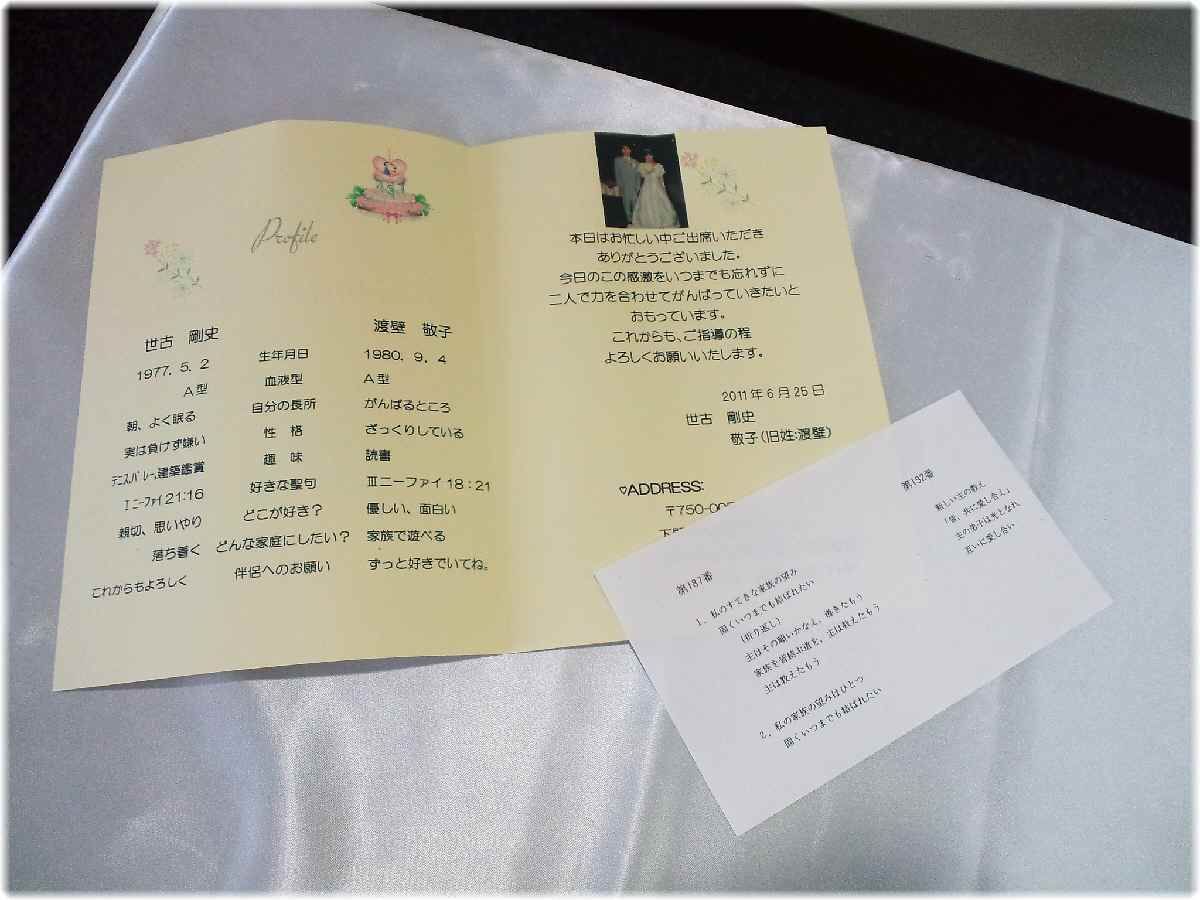 Profile
世古 剛史 渡壁 敬子
1977. 5. 2 生年月日 1980. 9. 4
A型 血液型 A型
朝、よく眠る 自分の長所 がんばるところ
実は負けず嫌い 性 格 ざっくりしている
テニス,バレー,建築鑑賞 趣 味 読書
Ⅰニーファイ21:16 好きな聖句 Ⅲニーファイ18:21
親切、思いやり どこが好き? 優しい、面白い
落ち着く どんな家庭にしたい? 家族で遊べる
これからもよろしく 伴侶へのお願い ずっと好きでいてね。
本日はお忙しい中ご出席いただき
ありがとうございました。
今日のこの感激をいつまでも忘れずに
二人で力を合わせてがんばっていきたいと
おもっています。
これからも、ご指導の程
よろしくお願いいたします。
2011年6月25日
世古 剛史
敬子(旧姓:渡壁)
♡ADDRESS:
〒750-00
第187番
1、私のすてきな家族の望み
固くいつまでも結ばれたい
(折り返し)
主はその願いかなえ、導きたもう
家族を皆結ぶ道を、主は教えたもう
主は教えたもう
2、私の家族の望みはひとつ
固くいつまでも結ばれたい
第192番
新しい主の教え
「皆、共に愛し合え」
主の弟子は光となれ
互いに愛し合い